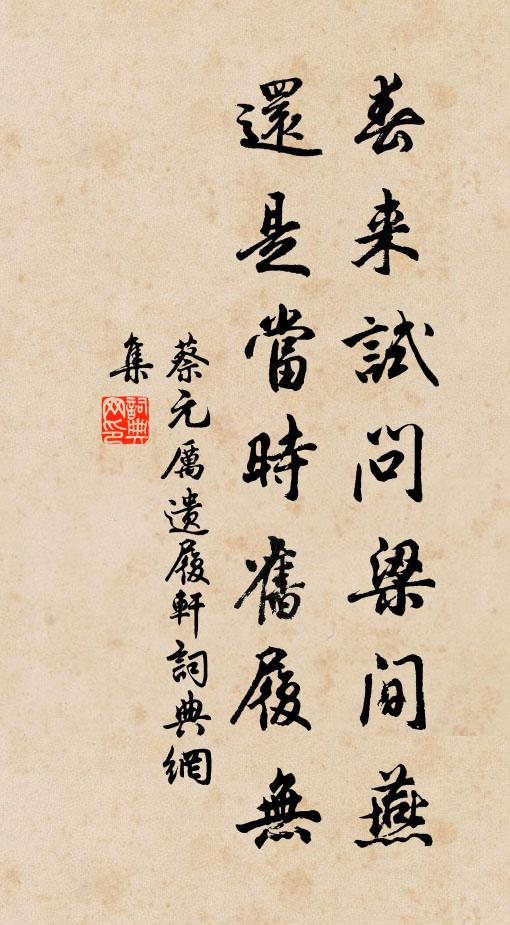 春来試問梁間燕
還是當時舊履無
蔡元厲遺履軒詞典網
集
詞典網印